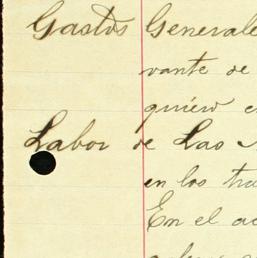 Gastos Generale
vante de
quiero e
Labor de Las
en los tra
En el ac